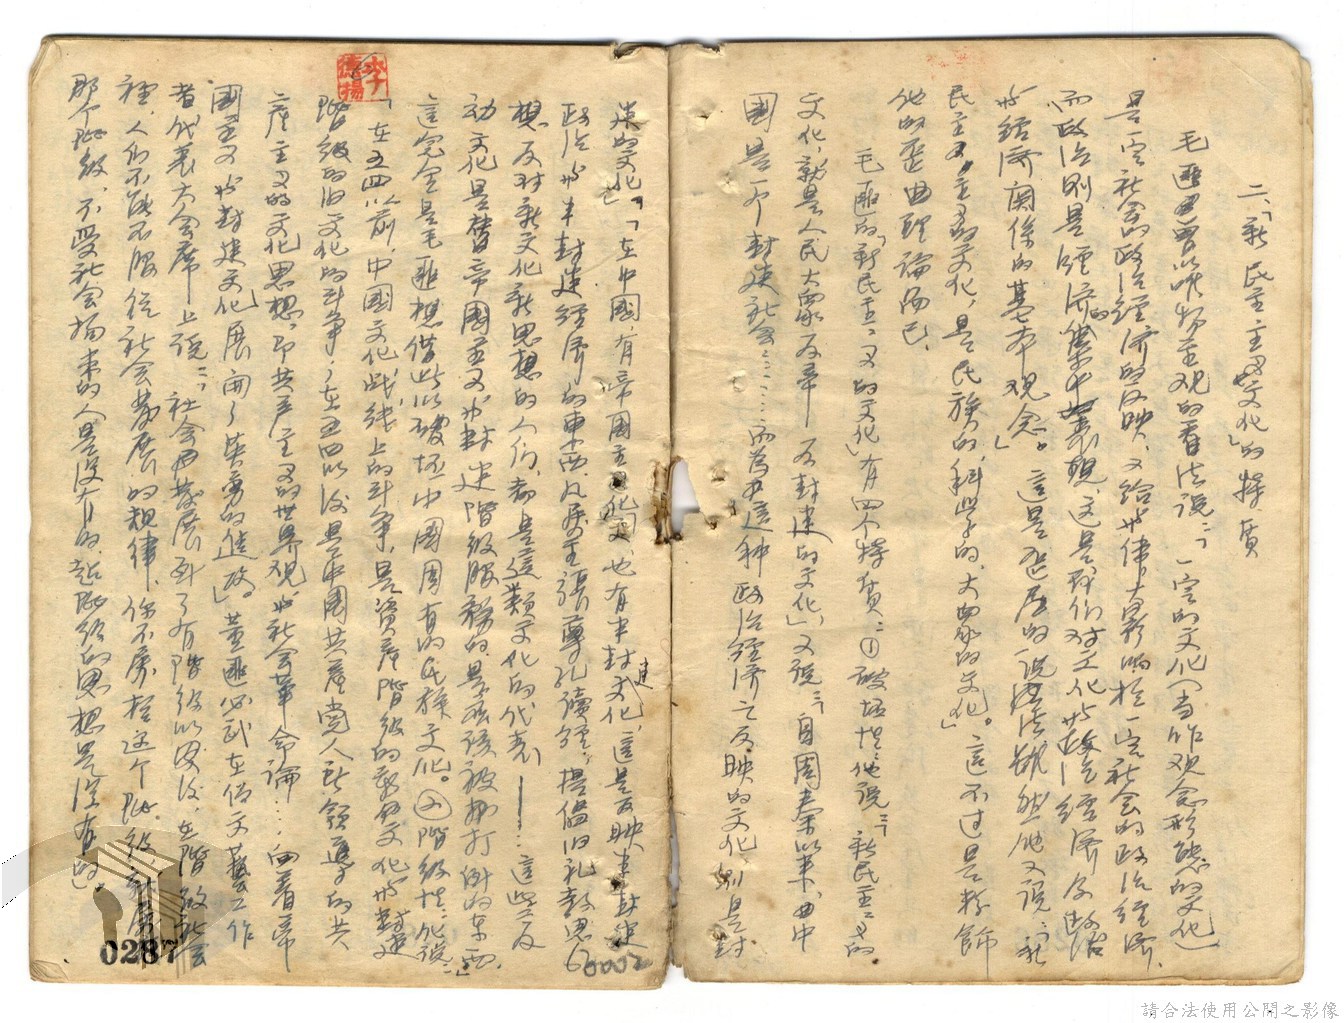 二、「新民主主义文化」的特质
毛匪曾以唯物主观的看法说：「一定的文化（当作观念形态的文化）
是一定社会的政治经济的反映，又给与伟大影响于一定社会的政治经济，
而政治则是经济的集中表现，这是我们对文化与政治经济及政治
与经济关系的基本观念。」这是他的说法，然他又说：「新
民主主义的文化，是民族的，科学的，大众的文化。」这不过是粉饰
他的歪曲理论而已。
毛匪的「新民主主义的文化」有四个特质：①破坏性：他说：「新民主主义的
文化，就是人民大众反帝反封建的文化」，又说：「自周秦以来，中
國是一个封建社会……而為这种政治經濟之反映的文化，則是封
建的文化」。「在中國，有帝国主义文化，也有半封建文化，這是反映半封建
政治與半封建經濟的東西，凡属主張尊孔讀經，提倡旧礼教思
想，反对新文化新思想的人们，都是這類文化的代表——……這些反
动文化是替帝國主义與封建階級服務的，是應該被打倒的东西。」
這完全是毛匪想借此以破坏中國固有的民族文化。②階級性：他說：
「在五四以前，中國文化战线上的斗争，是資產階級的新文化与封建
階級的旧文化的斗争，在五四以後……中國共產党人所領導的共
產主义的文化思想，即共产主义的世界观與社会革命論……向着帝
國主义與封建文化展开了英勇的進攻」。董匪必武在
者代表大会席上說：「社会发展到了有階級以後，在階級社会
裡，人们不能不服從社会發展的規律，你不屬於这个階級就屬
那个階級，不受社会拘束的人是没有的，超階級的思想是没有的。
李德揚
0002
0287
請合法使用公開之影像